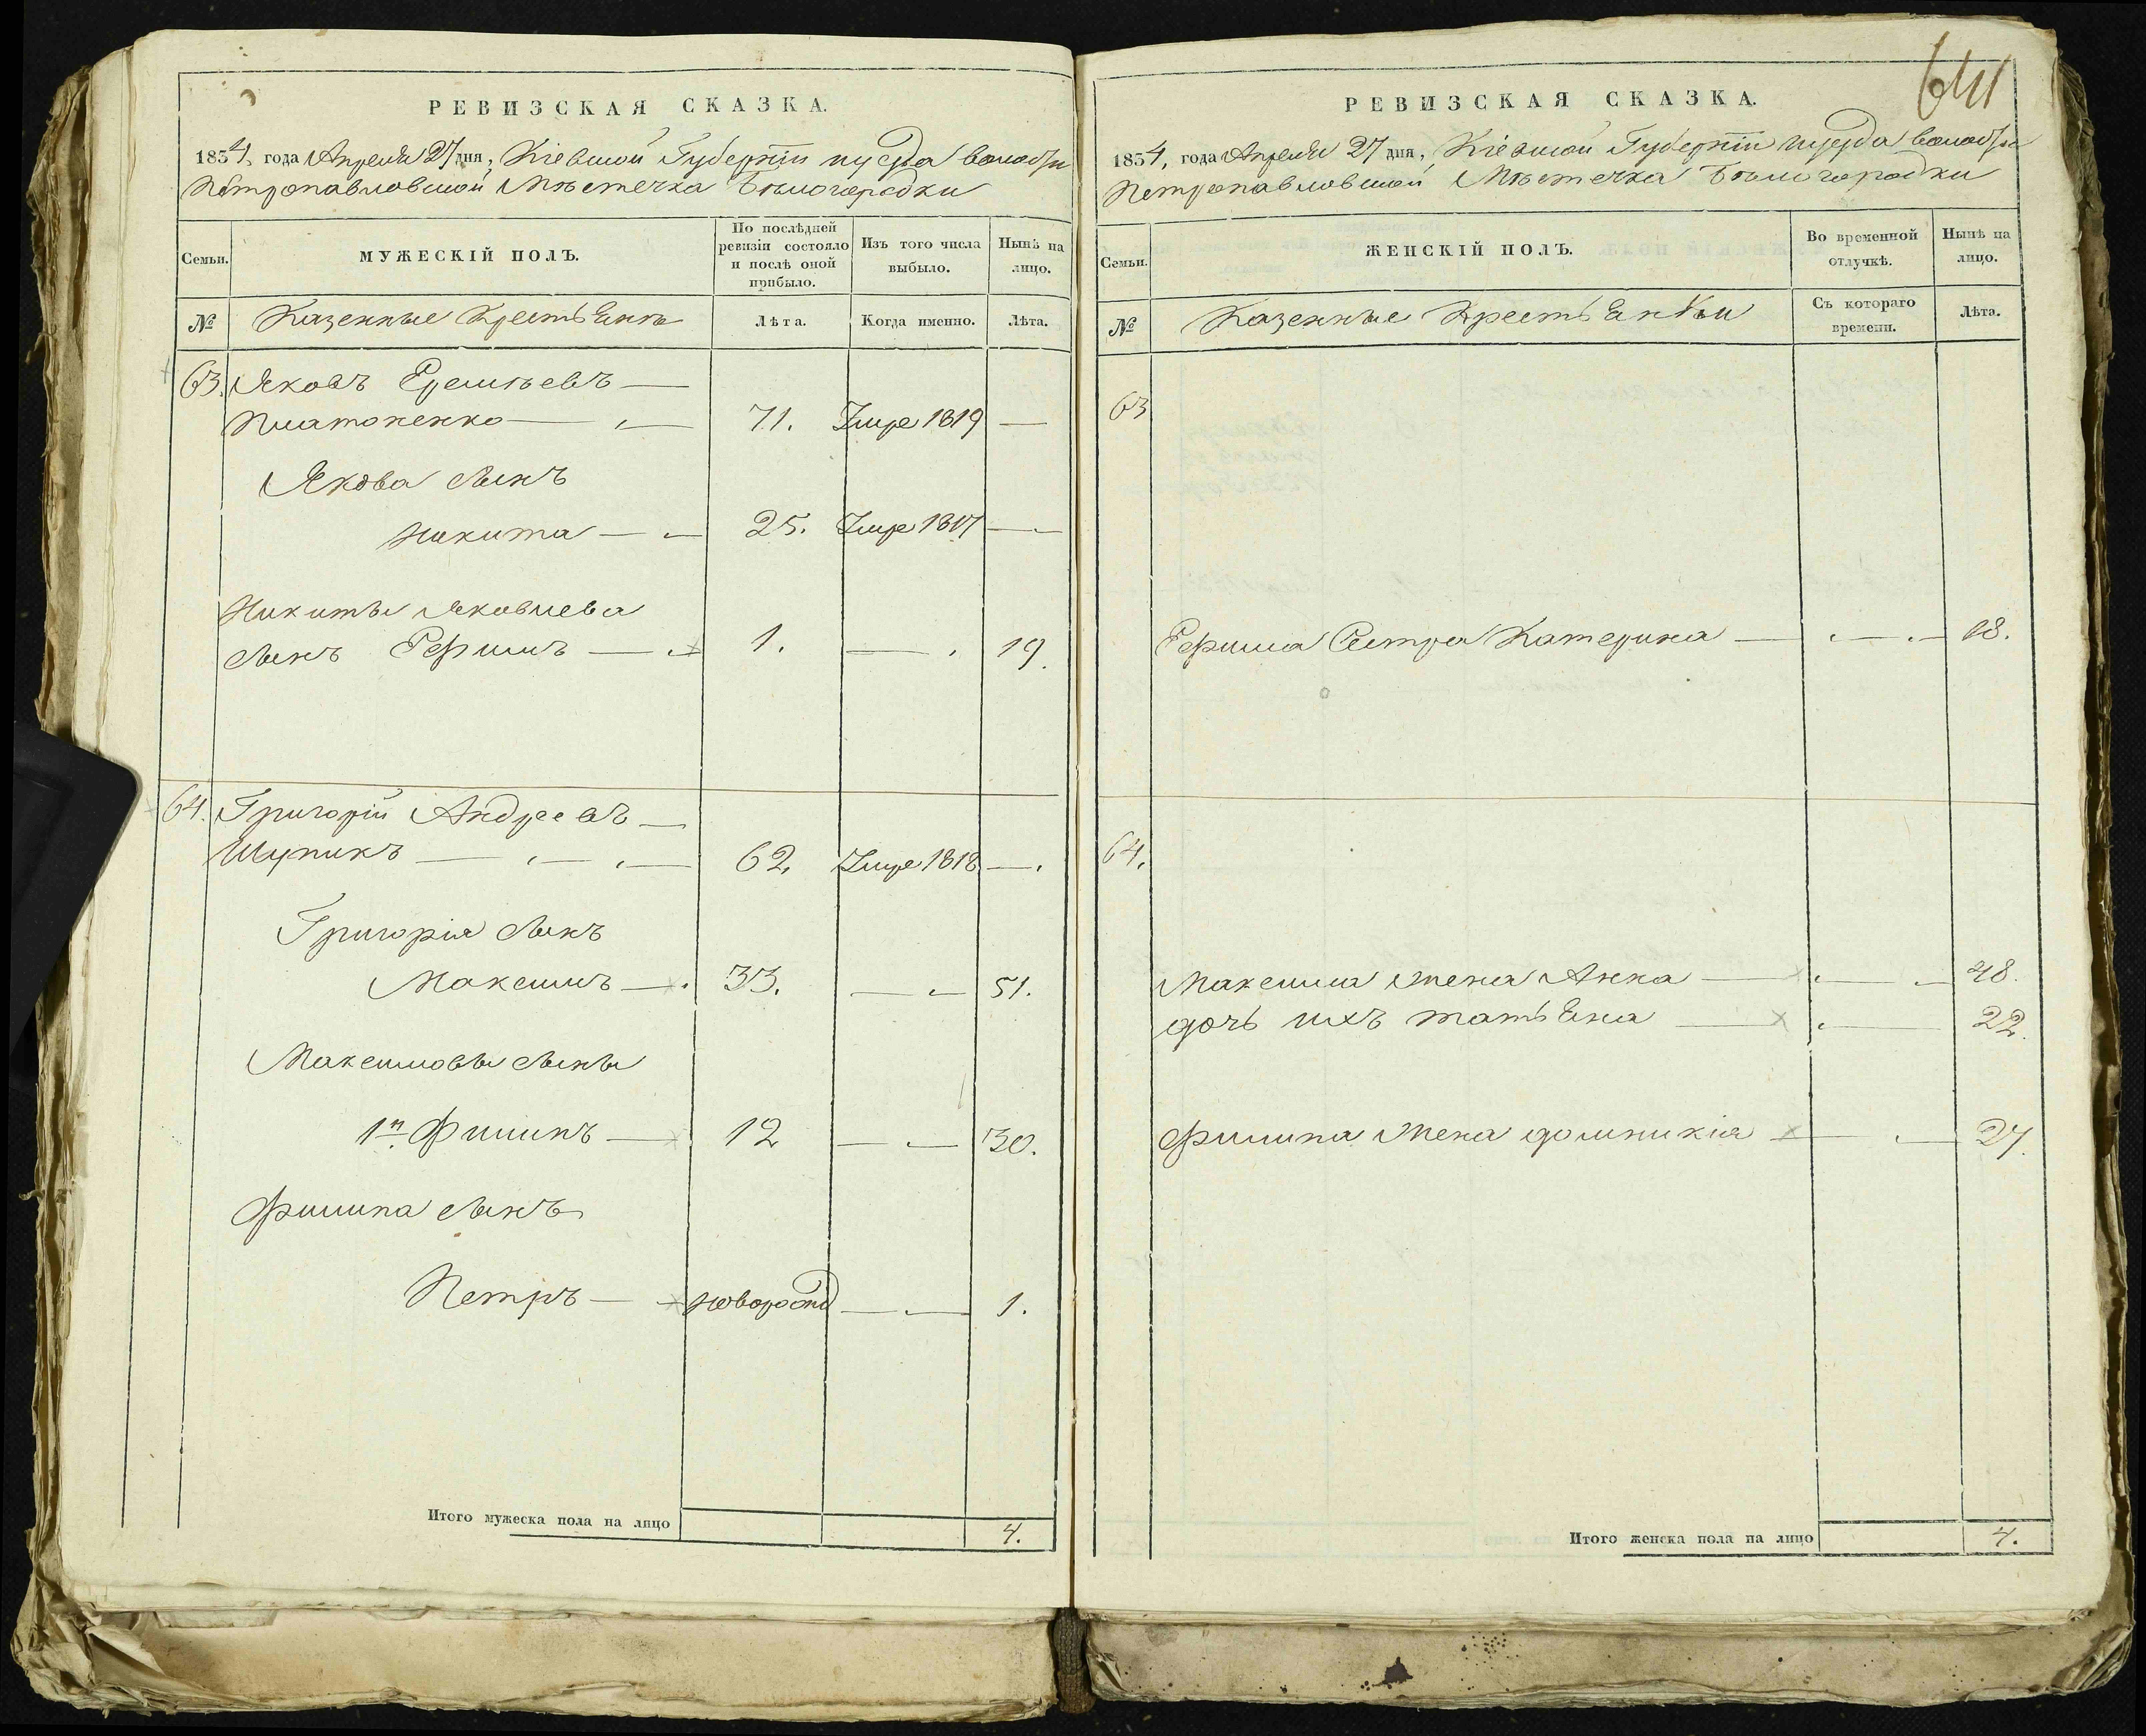 РЕВИЗСКАЯ СКАЗКА.
1854, года Апреля 27 дня, Кіевской Губерніи и уезда волости
Петропавловской Мѣстечка Бѣлогородки
Семьи.
МУЖЕСКІЙ ПОЛЪ.
По послѣдней ревизіи состояло и послѣ оной прибыло.
Изъ того числа выбыло.
Нынѣ на лицо.
№
Казенные Крестьяне
Лѣта.
Когда именно.
Лѣта.
63. Яковъ Еремѣевъ —
Платоненко — 71. Умре 1819 —
Якова сынъ
Никита — 25. Умре 1817 —
Никиты Яковлева
сынъ Ефимъ — 1. — 19.
64. Григорій Андреевъ —
Шупикъ — 62. Умре 1818 —
Григорія сынъ
Максимъ — 33. — 51.
Максимовы сыны
1й Филипъ — 12 — 30.
Филипа сынъ
Петръ — новорожд — 1.
Итого мужеска пола на лицо 4.
641
РЕВИЗСКАЯ СКАЗКА.
1854, года Апреля 27 дня, Кіевской Губерніи и уезда волости
Петропавловской Мѣстечка Бѣлогородки
Семьи.
ЖЕНСКІЙ ПОЛЪ.
Во временной отлучкѣ.
Нынѣ на лицо.
№
Казенные Крестьянки
Съ котораго времени.
Лѣта.
63
Ефима Сестра Катерина — 18.
64.
Максима жена Анна — 48.
дочь ихъ татьяна — 22.
Филипа жена домникія — 27.
Итого женска пола на лицо 4.